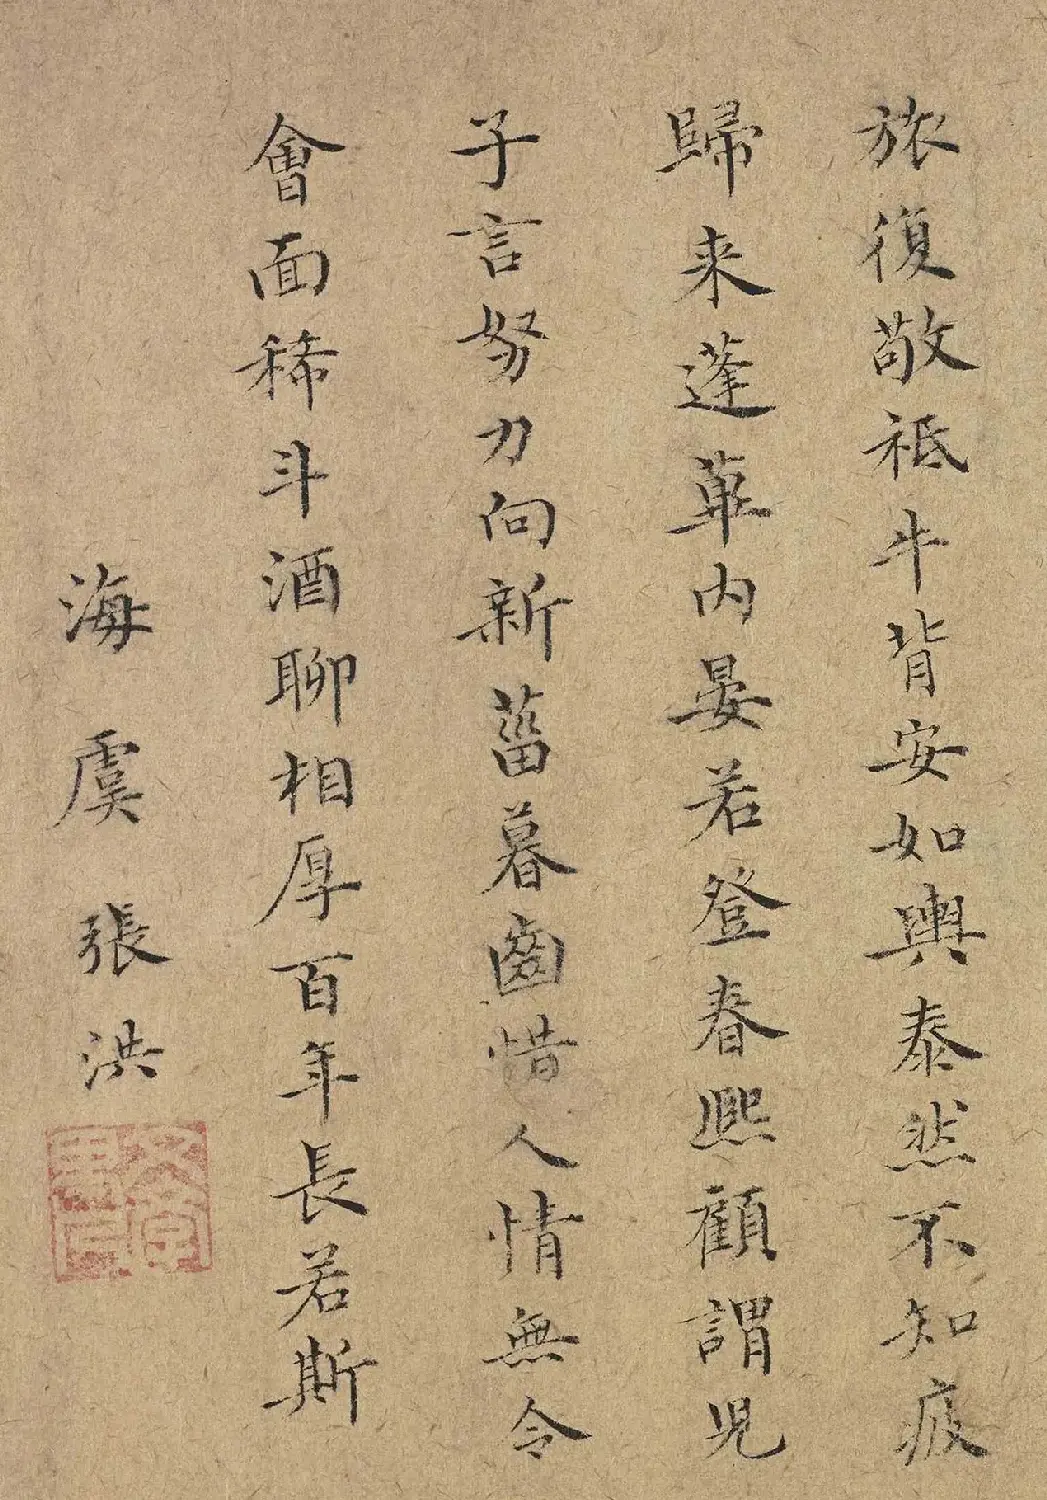 旅復敬祗牛背安如輿泰然不知疲
歸来蓬蓽内晏若登春熙顧謂兒
子言努力向新菑暮齒惜人情無令
會面稀斗酒聊相厚百年長若斯
海虞張洪